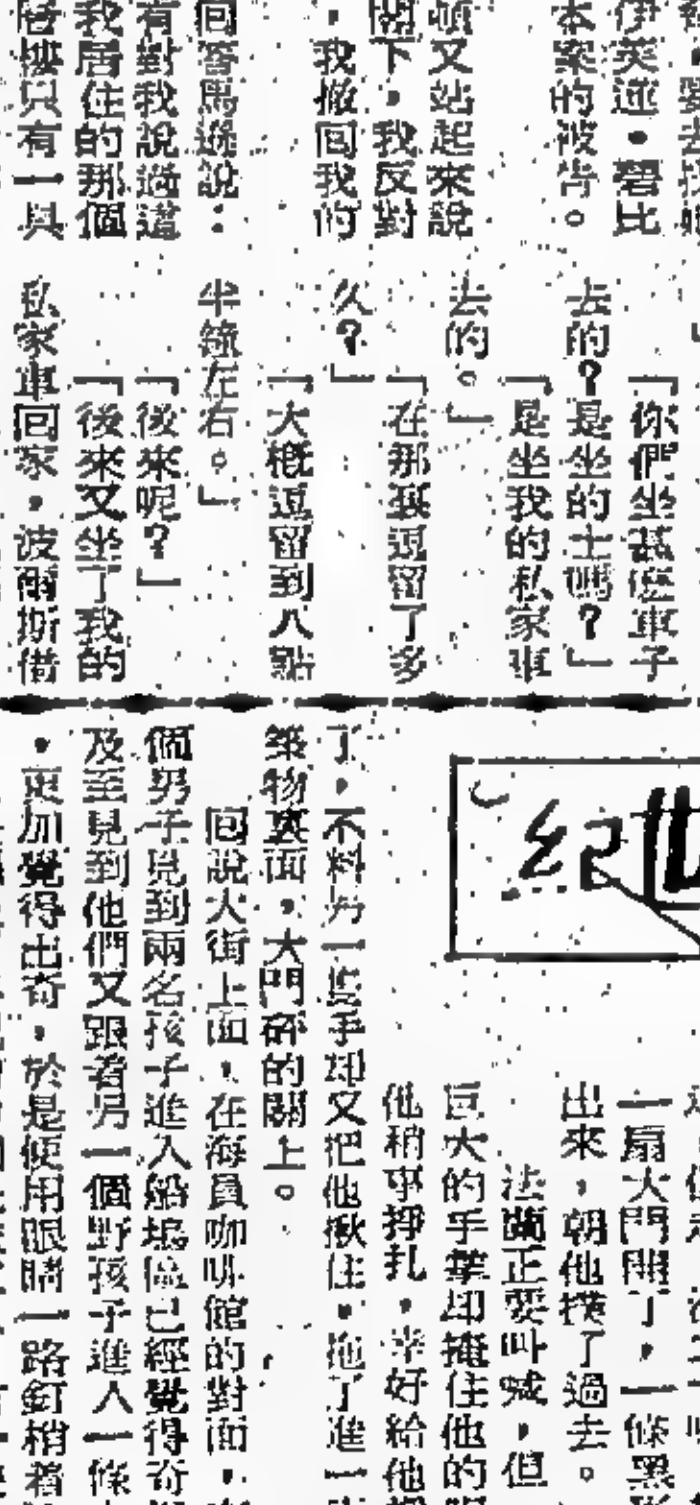 伊英迪·碧比
本案的被告。
頓又站起來說
閣下，我反對
，我撤回我的
回答馬遜說：
有對我說過這
我居住的那個
層樓只有一具
「你們坐甚麽車子
去的？是坐的士嗎？」
「是坐我的私家車
去的。」
「在那裏逗留了多
久？」
「大概逗留到八點
半鐘左右。」
「後來呢？」
「後來又坐了我的
私家車回家，波爾斯借
世紀
一扇大門開了，一條黑
出來，朝他撲了過去。
法蘭正要叫喊，但
巨大的手掌却掩住他的
他稍事掙扎，幸好給他
了，不料另一隻手却又把他揪住，拖了進一
築物裏面，大門砰的關上。
回說大街上面，在海員咖啡館的對面，
個男子見到兩名孩子進入船塢區已經覺得奇
及至見到他們又跟着另一個野孩子進入一條
，更加覺得出奇，於是便用眼睛一路釘梢着